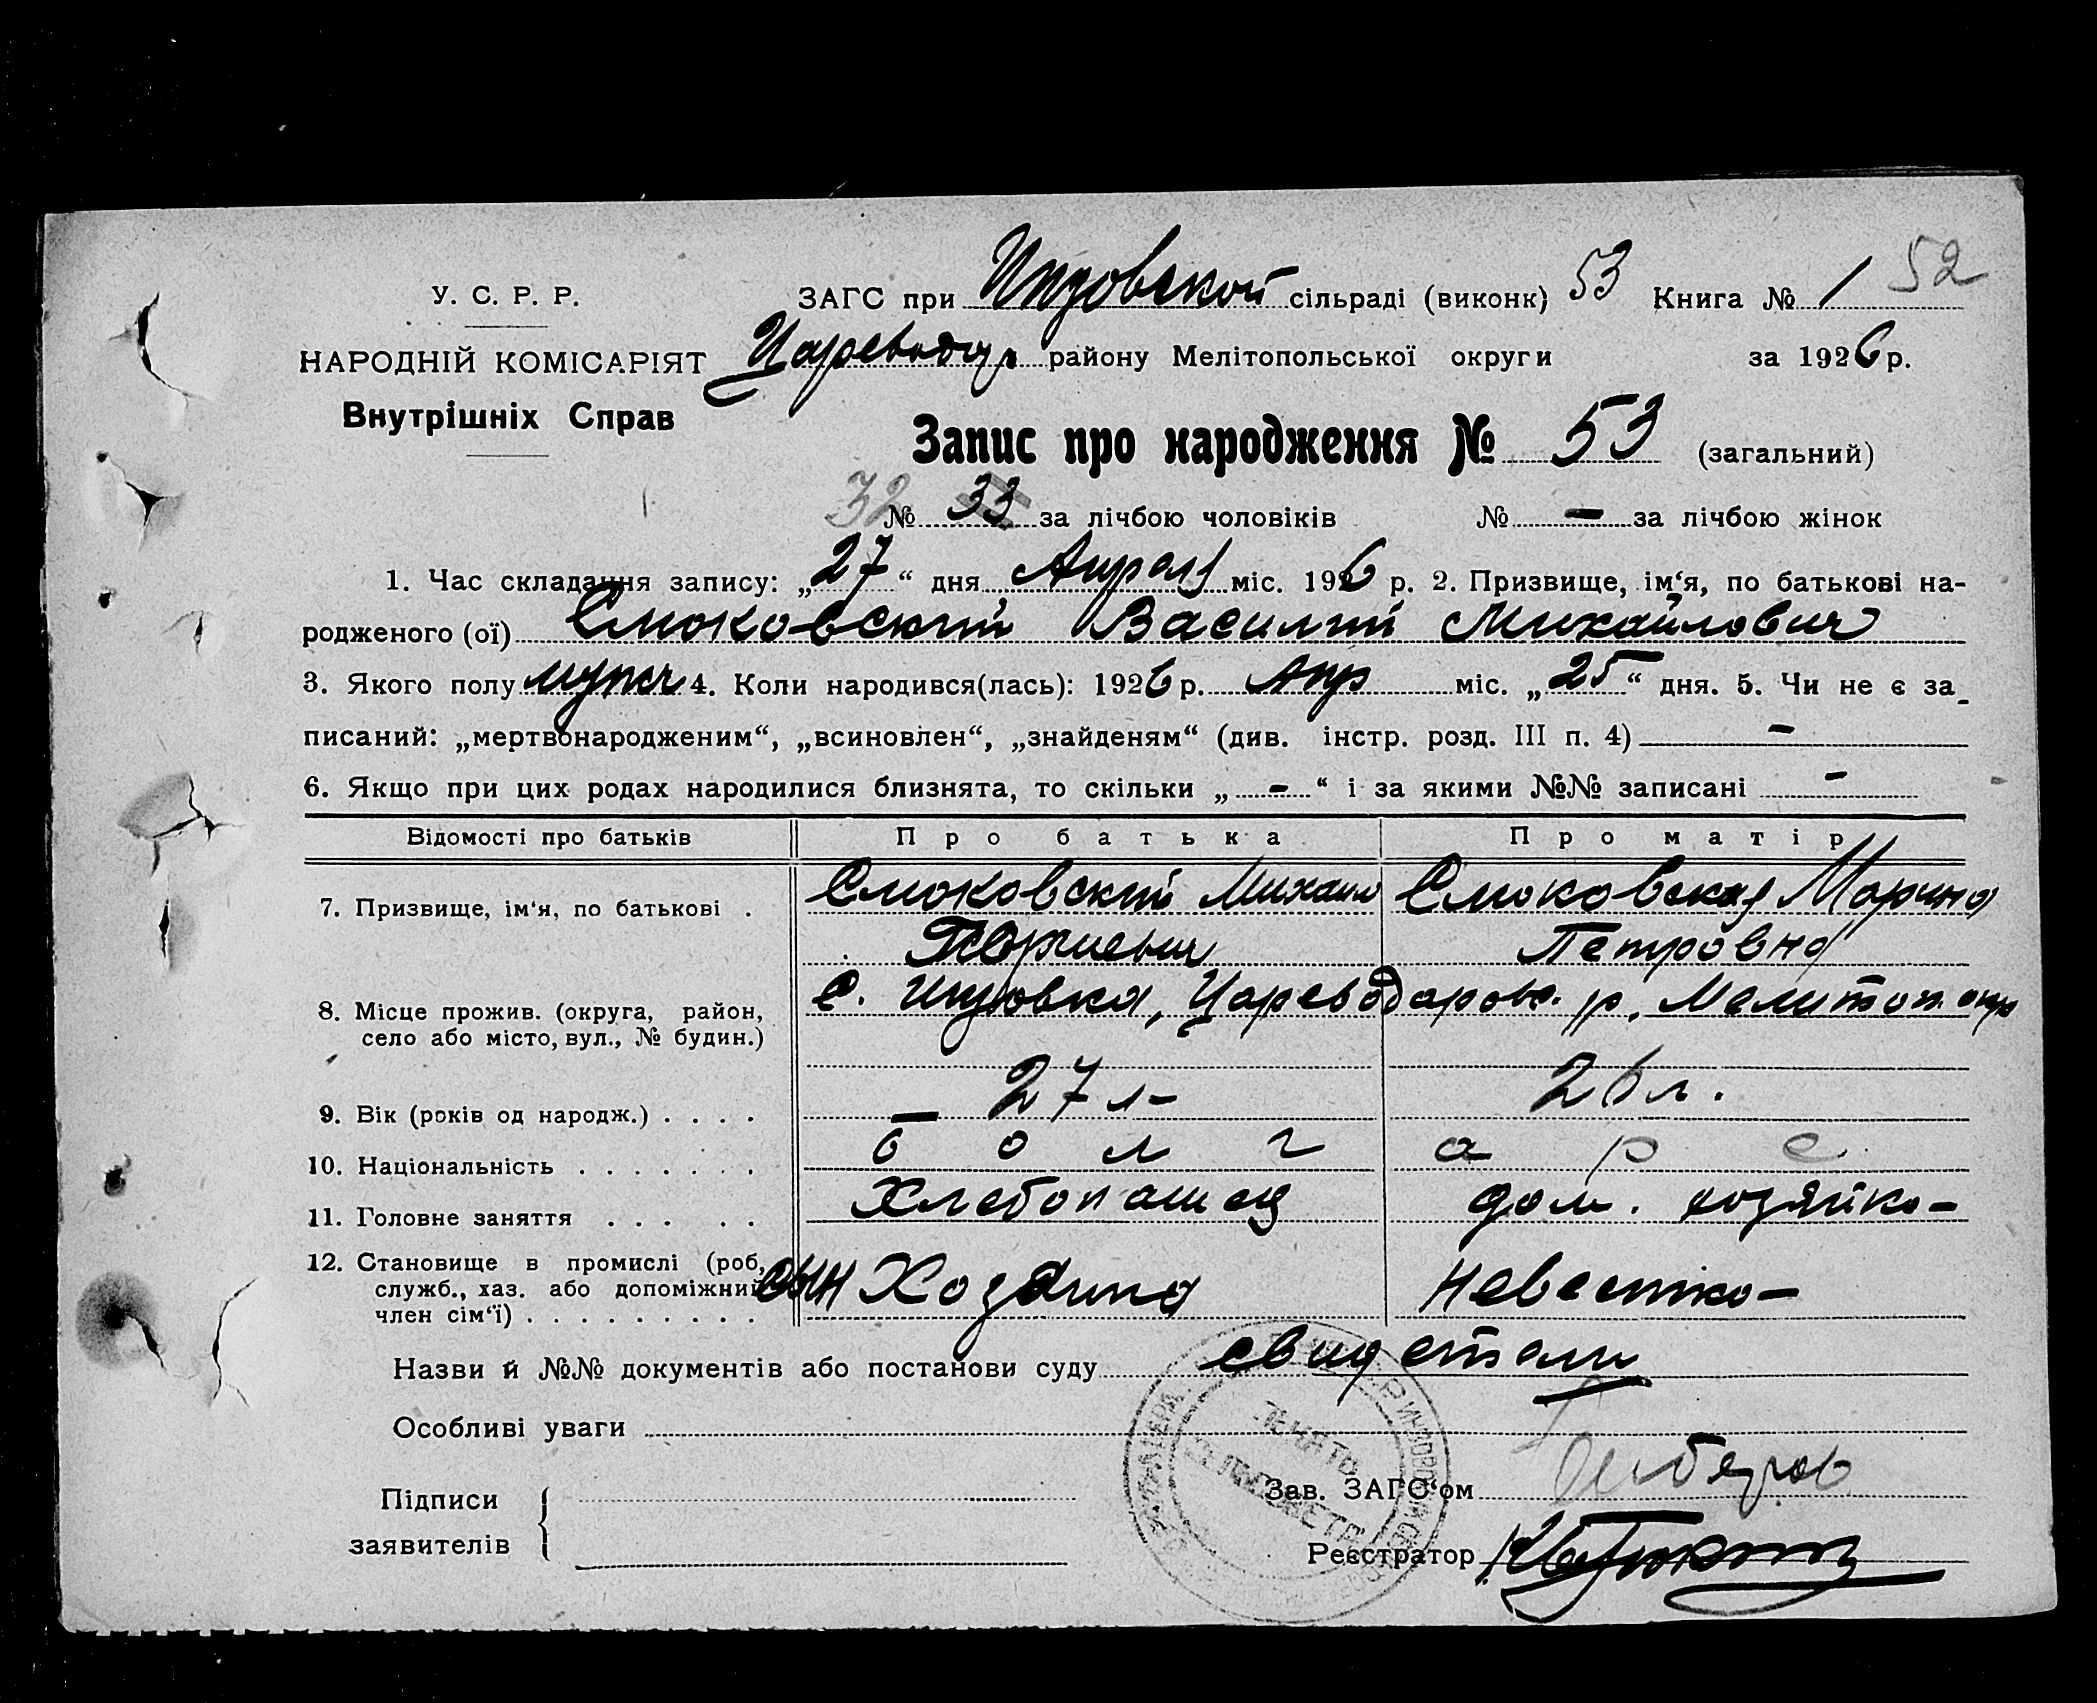 У. С. Р. Р.
НАРОДНІЙ КОМІСАРІЯТ
Внутрішніх Справ
ЗАГС при Инзовской сільраді (виконк) 53 Книга № 1 52
Царевод района Мелітопольської округи за 1926 р.
Запис про народження № 53 (загальний)
32 № 33 за лічбою чоловіків № — за лічбою жінок
1. Час складання запису: „27“ дня Апреля міс. 1926 р. 2. Призвище, ім‘я, по батькові на-
родженого (ої) Смоковский Василий Михайлович
3. Якого полу мужч 4. Коли народився(лась): 1926 р. Апр міс. „25“ дня. 5. Чи не є за_
писаний: „мертвонародженим“, „всиновлен“, „знайденям“ (див. інстр. розд. III п. 4) —
6. Якщо при цих родах народилися близнята, то скільки „ — “ і за якими №№ записані —
Відомості про батьків Про батька Про матір
7. Призвище, ім‘я, по батькові . Смоковский Михаил Смоковская Марина
Петровна
8. Місце прожив. (округа, район,
село або місто, вул., № будин.)
с. Инзовка, Цареводаровс. р. Мелитоп. окр
9. Вік (років од народж.) . . . . — 27 л— 26 л.
10. Національність . . . . . . . болг аре
11. Головне заняття . . . . . Хлебопашец дом. хозяйка—
12. Становище в промислі (роб,
служб., хаз. або допоміжний
член сім‘ї) . . . . . . . . . сын Хозяина невестка—
Назви й №№ документів або постанови суду свидетели
Особливі уваги
Підписи
заявителів
Зав. ЗАГС‘ом
Реєстратор